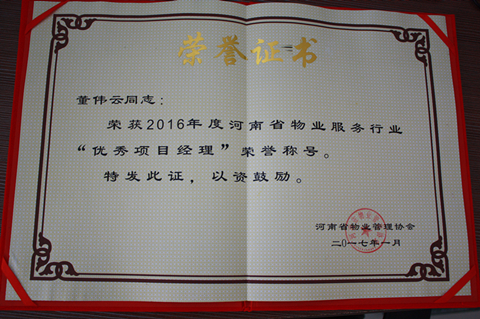 荣誉证书
董伟云同志：
荣获2016年度河南省物业服务行业
“优秀项目经理”荣誉称号。
特发此证，以资鼓励。
河南省物业管理协会
二〇一七年一月